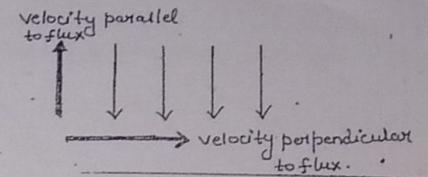 velocity parallel
to flux
velocity perpendicular
to flux.